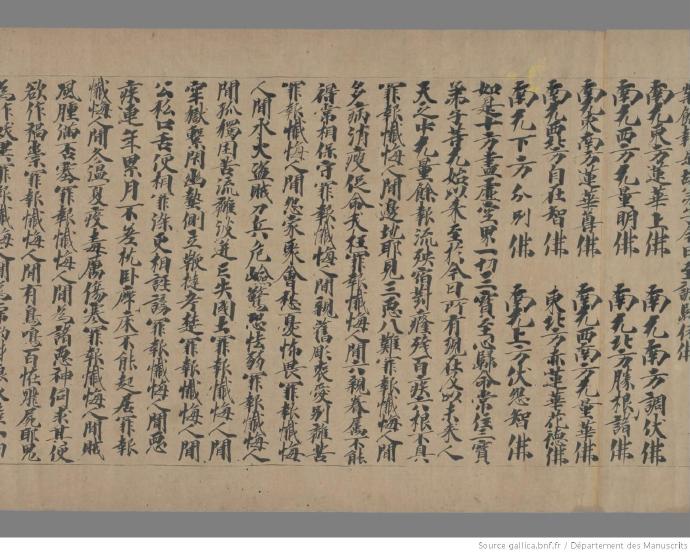 南无東方蓮華上佛 南无南方調伏佛
南无西方无量明佛 南无北方勝根諸佛
南无東南方蓮華尊佛 南无西南方无量華佛
南无西北方自在智佛 東北方赤蓮華德佛
南无下方分別佛 南无上方伏怨智佛
如是十方盡虛空界一切三寶至心歸命常住三寶
弟子等无始以来至於今日所有現在及以未来人
天之中无量餘報流殃宿對癃殘百疾六根不具
罪報懺悔人間邊地耶見三惡八難罪報懺悔人間
多病消瘦促命夭枉罪報懺悔人間六親眷属不能
得常相保守罪報懺悔人間親舊彫喪愛別離苦
罪報懺悔人間怨家聚會愁憂怖畏罪報懺悔
人間水火盜賊刀兵危嶮驚恐怯弱罪報懺悔人
間孤獨困苦流離波迸亡失國土罪報懺悔人間
牢獄繫閉幽執側立鞭撻考楚罪報懺悔人間
公私口舌便相罪染更相誣謗罪報懺悔人間惡
疾連年累月不差枕卧床不能起居罪報
懺悔人間冬温夏疫毒厲傷寒罪報懺悔人間賊
風腫滿否塞罪報懺悔人間為諸惡神伺求其便
欲作禍祟罪報懺悔人間有鳥鳴百怪飛屍耶鬼
Source gallica.bnf.fr / Département des Manuscrits